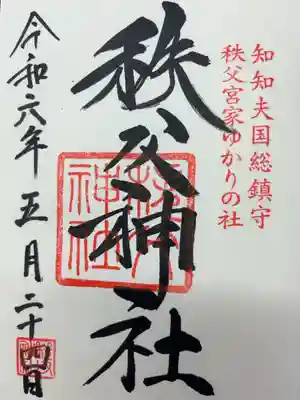 知知夫国総鎮守
秩父宮家ゆかりの社
秩父神社
秩父神社
令和六年五月二十四日